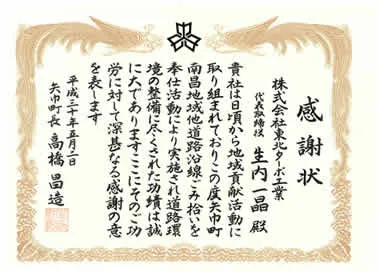 感謝状
株式会社東北ターボ工業
代表取締役 生内一晶 殿
貴社は日頃から地域貢献活動に
取り組まれておりこの度矢巾町
南昌地域他道路沿線ごみ拾いを
奉仕活動により実施され道路環
境の整備に尽くされた功績は誠
に大でありますここにそのご功
労に対して深甚なる感謝の意
を表します
平成三十年五月二日
矢巾町長 高橋昌造